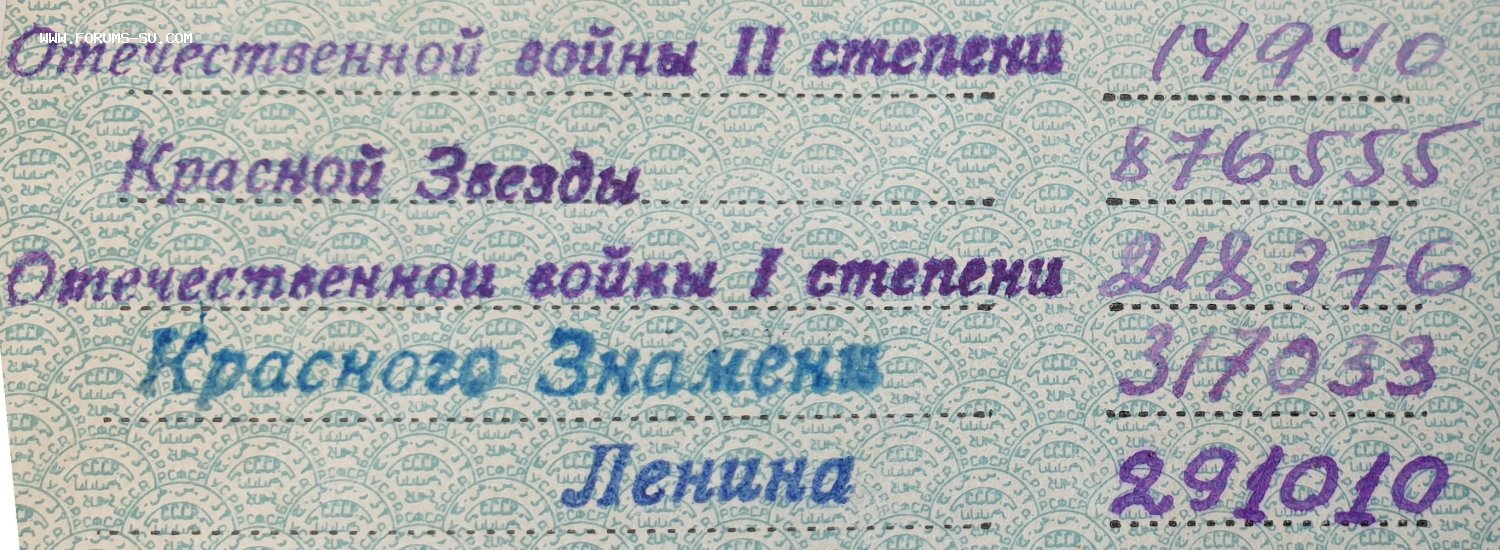 WWW.FORUMS-SU.COM
Отечественной войны II степени 14940
Красной Звезды 876555
Отечественной войны I степени 218376
Красного Знамени 317033
Ленина 291010